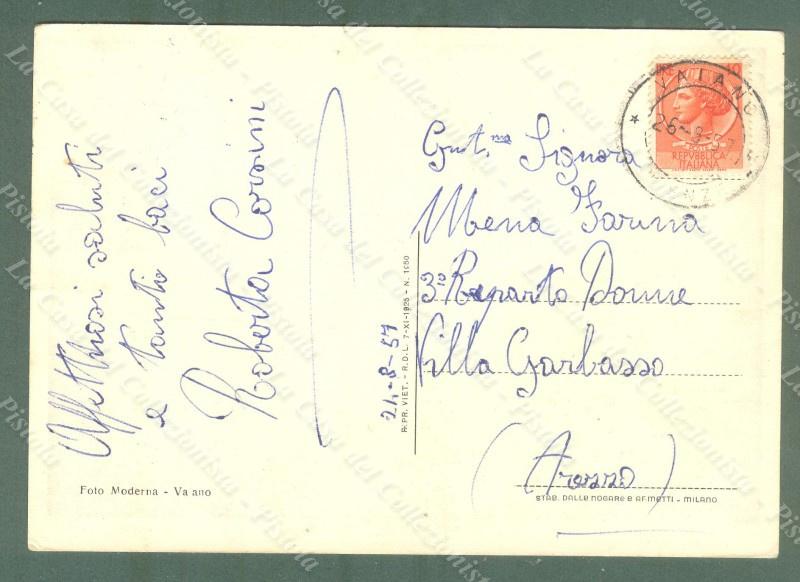 Affettuosi saluti
e tanti baci
Roberta Corsini
Foto Moderna - Vaiano
21-8-57
RIPR. VIET. - R.D.L. 7-XI-1925 - N. 1950
10
REPVBBLICA
ITALIANA
VAIANO
26-8-57
Gent.ma Signora
Mena Farina
3º Reparto Donne
Villa Garbasso
(Arezzo)
STAB. DALLE NOGARE E ARMETTI - MILANO
La Casa del Collezionista - Pistoia